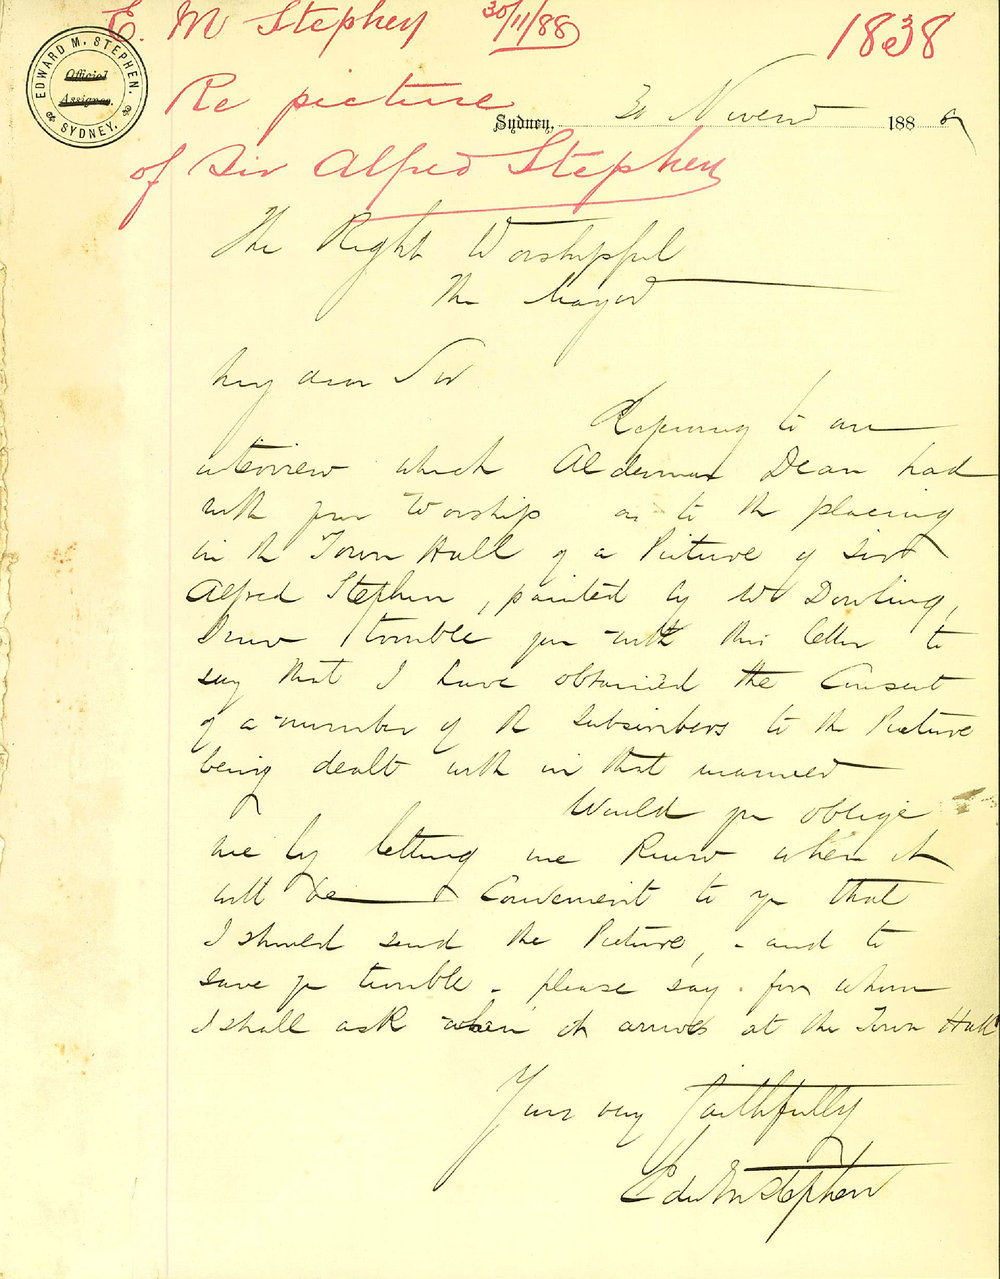 E. M Stephen 30/11/88 1838
EDWARD M. STEPHEN.
Official
Assignee.
SYDNEY.
Re picture
Sydney, 30 Novem 1888
of Sir Alfred Stephen
The Right Worshipful
The Mayor
My dear Sir
Referring to an
interview which Alderman Dean had
with your Worship as to the placing
in the Town Hall of a Picture of Sir
Alfred Stephen, painted by Mr Dowling,
I now trouble you with this letter to
say that I have obtained the Consent
of a number of the Subscribers to the Picture
being dealt with in that manner
Would you oblige
me by letting me know when it
will be Convenient to you that
I should send the Picture, - and to
save you trouble - please say - for whom
I shall ask when it arrives at the Town Hall
Yours very faithfully
Edw M Stephen